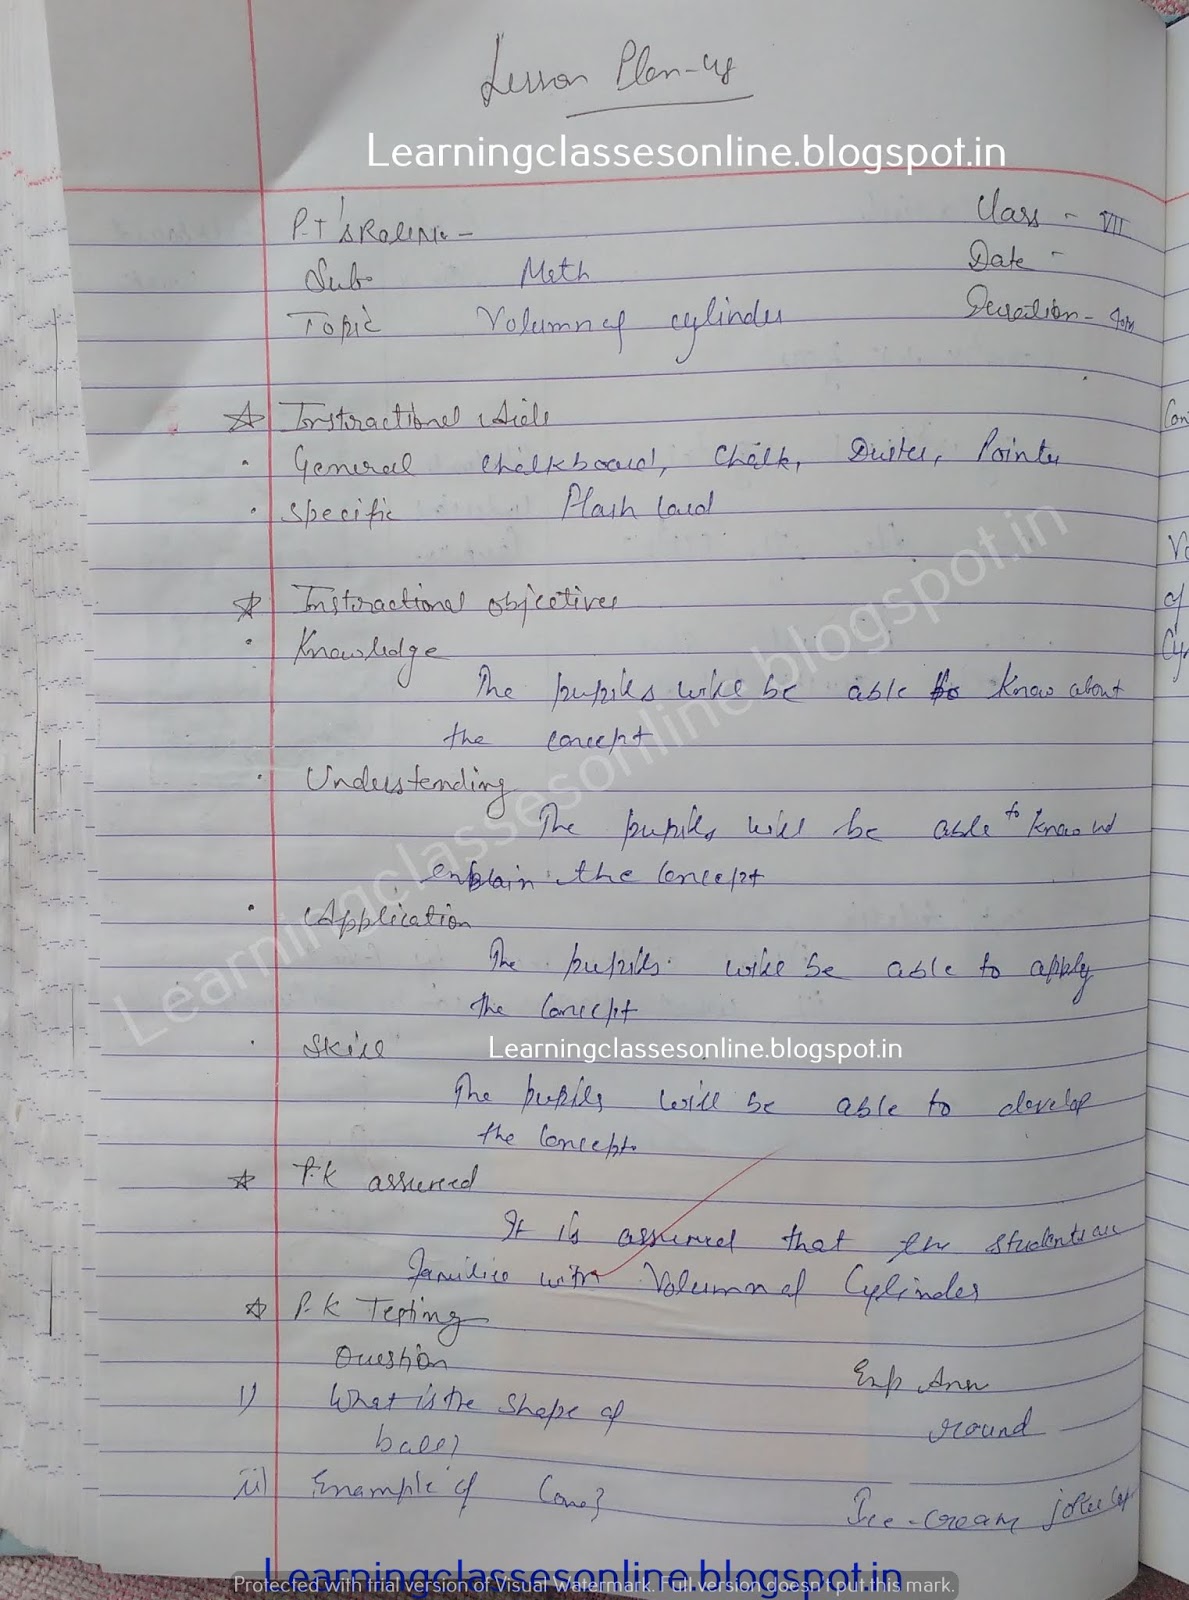 Lesson Plan-
Learningclassesonline.blogspot.in
P.T'S Roll No -
Class - VII
Sub Math
Date -
Topic Volumn of cylinder
Duration -
Instractional Aids
General Chalkboard, Chalk, Duster, Pointer
Specific Flash Card
Instractional objectives
Knowledge
The pupils will be able to know about
the concept
Understanding
The pupils will be able to know nd
explain the concept
Application
The pupils will be able to apply
the concept
Skill
Learningclassesonline.blogspot.in
The pupils will be able to develop
the concept
P.K assumed
It is assumed that the students are
Familier with Volumn of Cylinder
P.K Testing
Question
Exp Ans
i) What is the shape of
round
ball?
ii) Example of Cone?
Ice-cream joker cap
Learningclassesonline.blogspot.in
Con
Vo
of
Cyn
Learningclassesonline.blogspot.in
Protected with trial version of Visual Watermark. Full version doesn't put this mark.